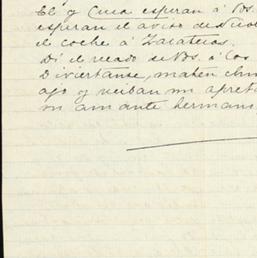 El y Cuca esperan á Vs.
esperan el aviso de
el coche á Zacatecas.
Di el recado de Vds. á los
Diviertanse, maten
ago y reciban un
un amante hermano